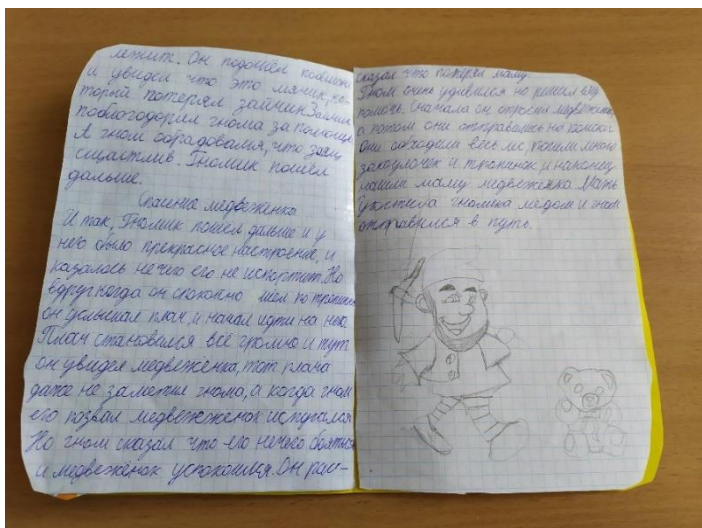 лежит. Он подошёл поближе
и увидел что это мячик, ко-
торый потерял зайчик. Зайчик
поблогодорил гнома за помощь.
А гном обрадовался, что заяц
сщастлив. Гномик пошёл
дальше.
Спасение медвеженка
И так, Гномик пошёл дальше и у
него было прекрасное настроение, и
казалось не чего его не испортит. Но
вдруг когда он спокойно шёл по тропинке
он услышал плач, и начал идти на него
Плач становился всё громче и тут
он увидел медвежёнка, тот плача
даже не заметил гнома, а когда гном
его позвал медвежёнок испугался
Но гном сказал что его нечего бояться
и медвежёнок успокоился. Он рас-
сказал что потерял маму.
Гном очень удивился но решил ему
помочь. Сначала он спросил медвежёнка,
а потом они отправились на поиски
Они обходили весь лес, много
закоулочек и тропинок, и наконец
нашли маму медвежёнка. Мать
угостила гномика медом и гном
отправился в путь.